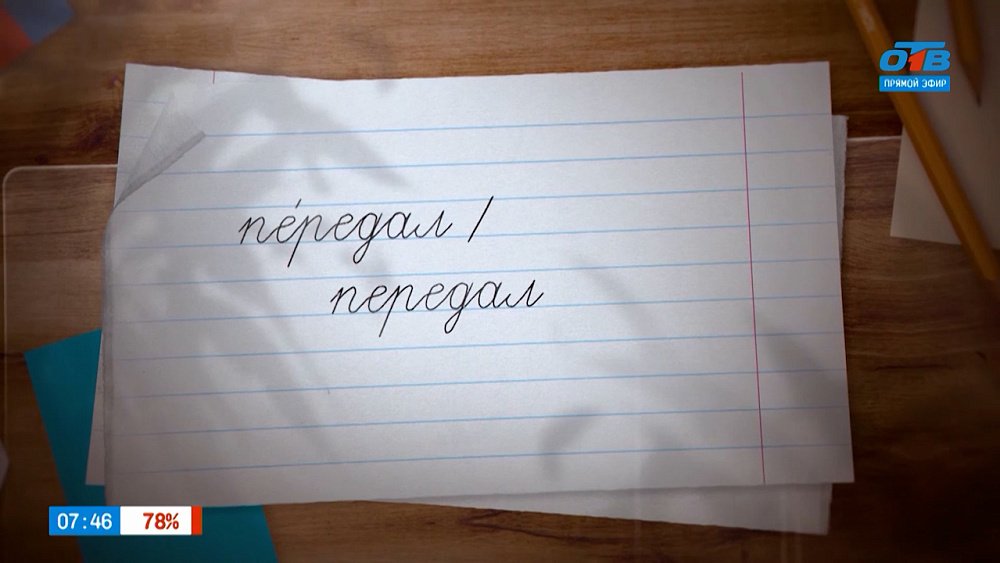 ОТВ
ПРЯМОЙ ЭФИР
пе́редал /
передал
07:46 78%